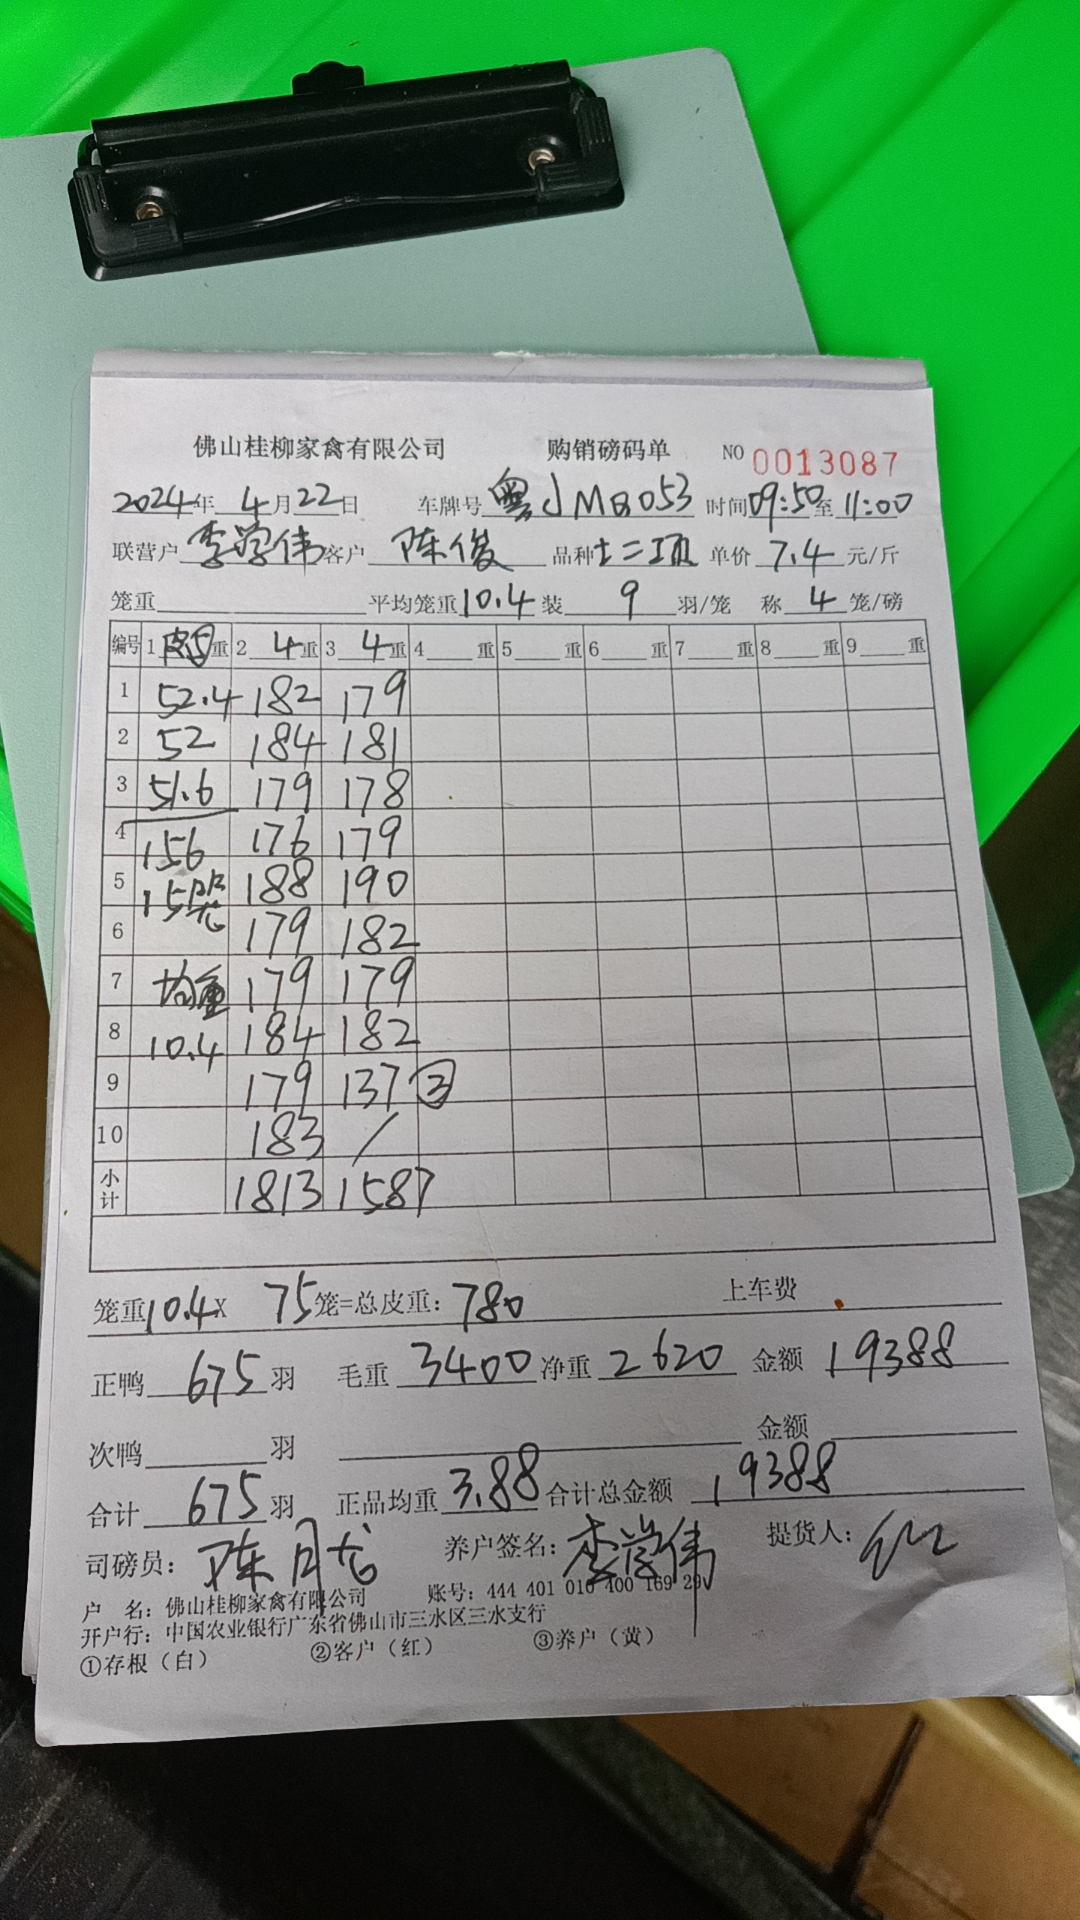 佛山桂柳家禽有限公司 购销磅码单 NO 0013087
2024年 4月22日 车牌号 粤JMB053 时间09:50至11:00
联营户 李学伟 客户 陈俊 品种 土二项 单价 7.4 元/斤
笼重 平均笼重10.4装 9 羽/笼 称 4 笼/磅
编号 1 皮5重 2 4重 3 4重 4 重 5 重 6 重 7 重 8 重 9 重
1 52.4 182 179
2 52 184 181
3 51.6 179 178
4 156 176 179
5 15笼 188 190
6 179 182
7 均重 179 179
8 10.4 184 182
9 179 137 ③
10 183 /
小计 1813 1587
笼重10.4X 75笼=总皮重: 780 上车费
正鸭 675 羽 毛重 3400 净重 2620 金额 19388
次鸭 羽 金额
合计 675 羽 正品均重 3.88 合计总金额 19388
司磅员: 陈月龙 养户签名: 李学伟 提货人:
户 名: 佛山桂柳家禽有限公司 账号: 444 401 010 400 169 29
开户行: 中国农业银行广东省佛山市三水区三水支行
①存根（白） ②客户（红） ③养户（黄）